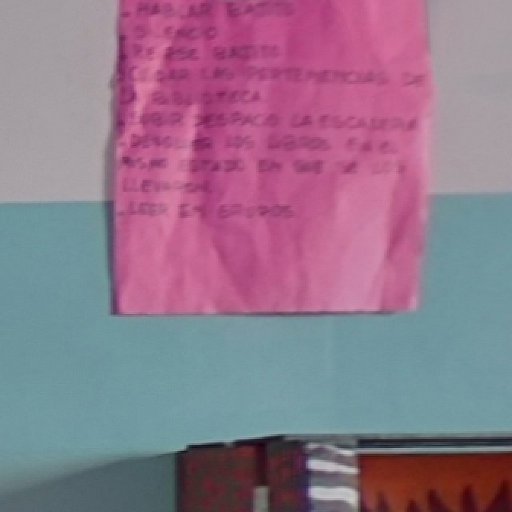 - HABLAR BAJITO
- SILENCIO
- REIRSE BAJITO
- CUIDAR LAS PERTENENCIAS DE
LA BIBLIOTECA
- SUBIR DESPACIO LA ESCALERA
- DEVOLVER LOS LIBROS EN EL
MISMO ESTADO EN QUE SE LOS
LLEVARON
- LEER EN GRUPOS